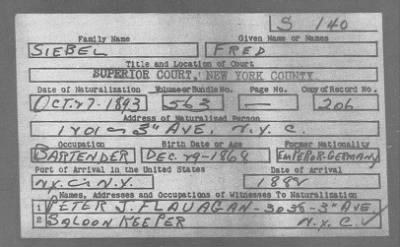 S 140
Family Name Given Name or Names
SIEBEL FRED
Title and Location of Court
SUPERIOR COURT, NEW YORK COUNTY
Date of Naturalization Volume or Bundle No. Page No. Copy of Record No.
OCT. 27-1893 563 — 206
Address of Naturalized Person
3" AVE, N.Y.C.
Occupation Birth Date or Age Former Nationality
BARTENDER DEC. 29-1868 EMPEROR-GERMANY
Port of Arrival in the United States Date of Arrival
N.Y.C. N.Y. 188
Names, Addresses and Occupations of Witnesses To Naturalization
1 PETER J. FLAUAGAN-3038-3" AVE,
2 SALOON KEEPER N.Y.C.